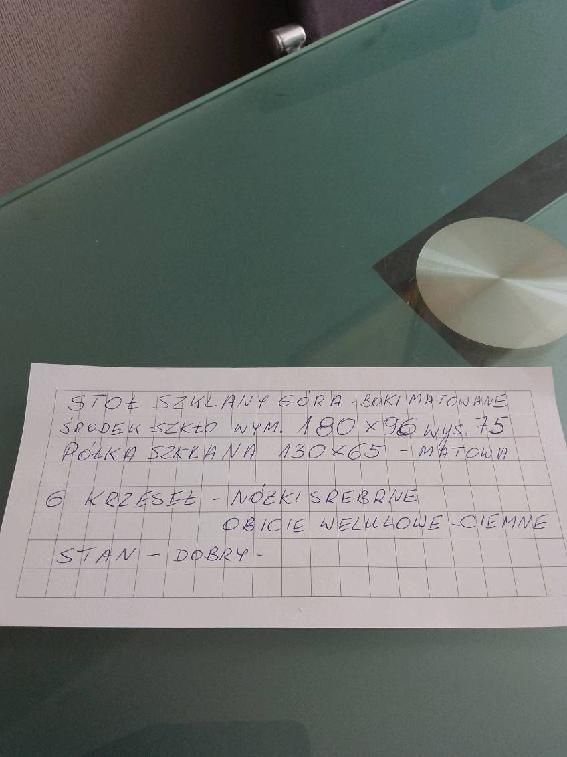 STOŁ SZKLANY GÓRA - BOKI MATOWANE
ŚRODEK SZKŁO WYM. 180 x 96 WYS. 75
PÓŁKA SZKLANA 130x65 - MATOWA
6 KRZESEŁ - NÓŻKI SREBRNE
OBICIE WELUROWE - CIEMNE
STAN - DOBRY -